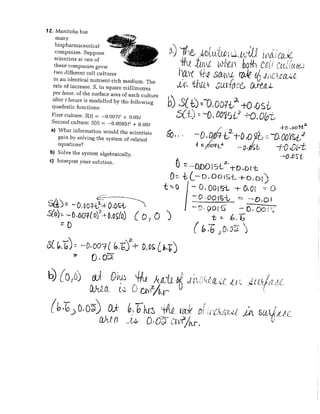 12. Manitoba has
many
biopharmaceutical
companies. Suppose
scientists at one of
these companies grow
two different cell cultures
in an identical nutrient-rich medium. The
rate of increase, S, in square millimetres
per hour, of the surface area of each culture
after t hours is modelled by the following
quadratic functions:
First culture: S(t) = -0.007t² + 0.05t
Second culture: S(t) = -0.0085t² + 0.06t
a) What information would the scientists
gain by solving the system of related
equations?
b) Solve the system algebraically.
c) Interpret your solution.
a) The solutions will indicate
the time when both cell cultures
have the same rate of increase
in their surface areas.
b) S(t) = -0.007t² + 0.05t
S(t) = -0.0085t² + 0.06t
So... -0.007t² + 0.05t = -0.0085t²
+0.007t² -0.05t +0.06t
+0.007t²
-0.05t
0 = -0.0015t² + 0.01t
0 = t(-0.0015t + 0.01)
t = 0
-0.0015t + 0.01 = 0
-0.0015t = -0.01
-0.0015 -0.0015
t = 6.6
(6.6, 0.02)
S(t) = -0.007t² + 0.05t
S(0) = -0.007(0)² + 0.05(0) (0, 0)
= 0
S(6.6) = -0.007(6.6)² + 0.05(6.6)
= 0.02
b) (0,0) at 0 hrs the rate of increase in surface
area is 0 cm²/hr
(6.6, 0.02) at 6.6 hrs the rate of increase in surface
area is 0.02 cm²/hr.